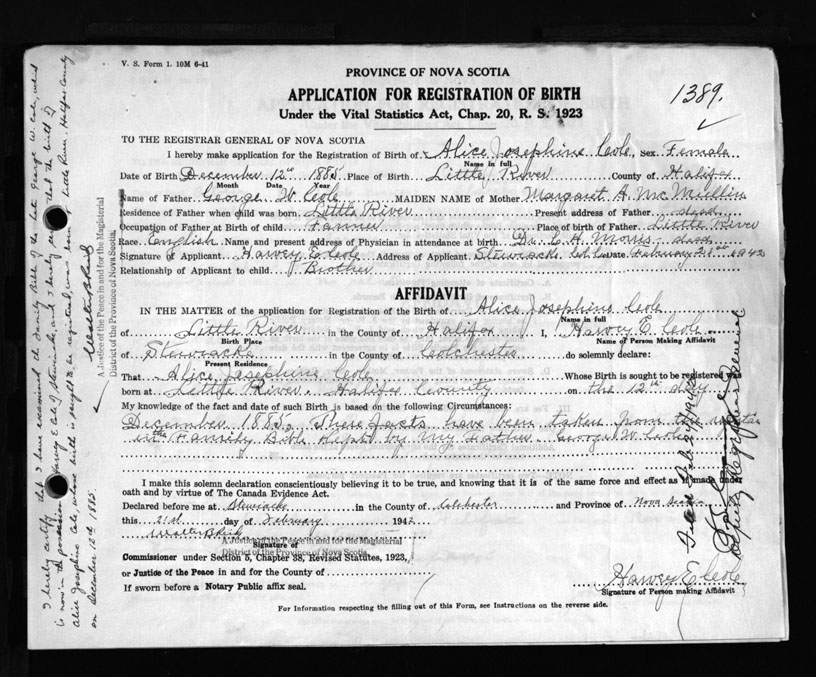 V. S. Form 1. 10M 6-41
PROVINCE OF NOVA SCOTIA
APPLICATION FOR REGISTRATION OF BIRTH
Under the Vital Statistics Act, Chap. 20, R. S. 1923
1389.
TO THE REGISTRAR GENERAL OF NOVA SCOTIA
I hereby make application for the Registration of Birth of Alice Josephine Cole Sex Female
Name in full
Date of Birth December 12th 1885 Place of Birth Little River County of Halifax
Month Date Year
Name of Father George W. Cole MAIDEN NAME of Mother Margaret A. McMullin
Residence of Father when child was born Little River Present address of Father dead
Occupation of Father at Birth of child Farmer Place of birth of Father Little River
Race English Name and present address of Physician in attendance at birth Dr. C. H. Morris dead
Signature of Applicant Harvey E. Cole Address of Applicant Stewiacke Col. Co. Date February 21st 1942
Relationship of Applicant to child Brother
AFFIDAVIT
IN THE MATTER of the application for Registration of the Birth of Alice Josephine Cole
Name in full
of Little River in the County of Halifax I, Harvey E. Cole
Birth Place Name of Person Making Affidavit
of Stewiacke in the County of Colchester do solemnly declare:
Present Residence
That Alice Josephine Cole Whose Birth is sought to be registered was
born at Little River Halifax County on the 12th day
My knowledge of the fact and date of such Birth is based on the following Circumstances:
December 1885. These facts have been taken from the
in the Family Bible kept by my father George W. Cole
I make this solemn declaration conscientiously believing it to be true, and knowing that it is of the same force and effect as if made under
oath and by virtue of The Canada Evidence Act.
Declared before me at Stewiacke in the County of Colchester and Province of Nova Scotia
this 21st day of February 1942
A Justice of the Peace in and for the Magisterial
Signature of
District of the Province of Nova Scotia.
Commissioner under Section 5, Chapter 38, Revised Statutes, 1923,
or Justice of the Peace in and for the County of
If sworn before a Notary Public affix seal.
Harvey E. Cole
Signature of Person making Affidavit
For Information respecting the filling out of this Form, see Instructions on the reverse side.
I hereby certify that I have examined the Family Bible of the late George W. Cole, which
is now in the possession of Harvey E. Cole of Stewiacke, and I hereby certify that the birth of
Alice Josephine Cole, whose birth is sought to be registered, was born at Little River, Halifax County
on December 12th 1885.
A Justice of the Peace in and for the Magisterial
District of the Province of Nova Scotia.
Deputy Registrar General